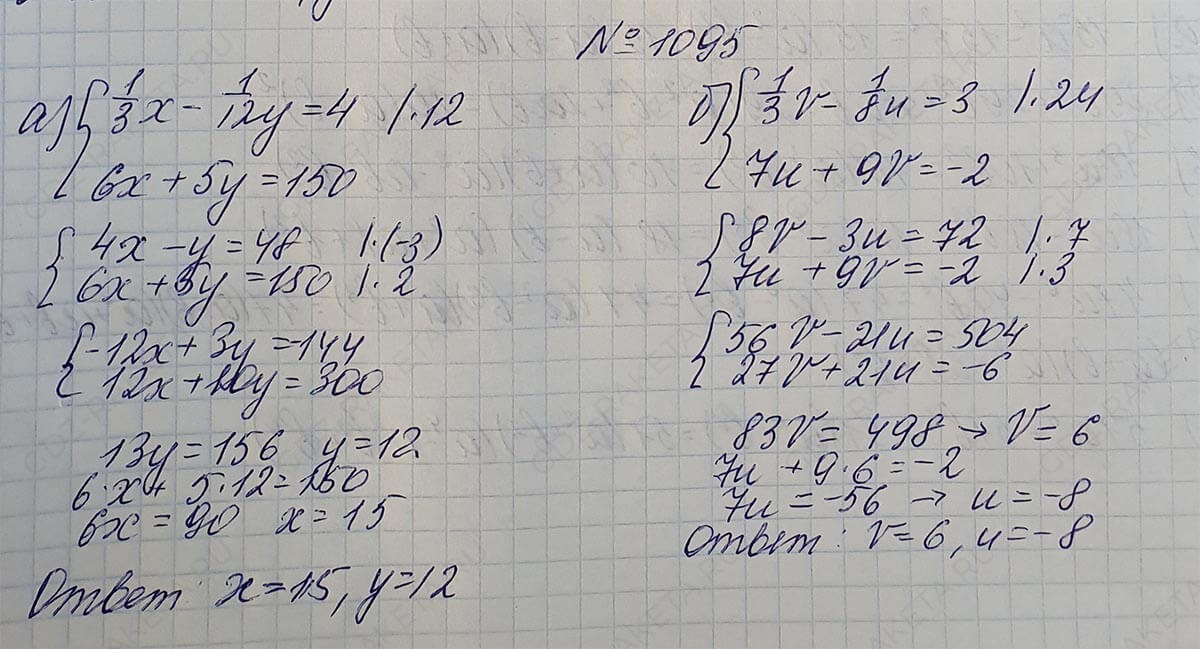 № 1095
а) { 1/3 x - 1/12 y = 4 |·12
6x + 5y = 150
{ 4x - y = 48 |·(-3)
6x + 5y = 150 |·2
{ -12x + 3y = -144
12x + 10y = 300
13y = 156 y = 12
6·x + 5·12 = 150
6x = 90 x = 15
Ответ: x = 15, y = 12
б) { 1/3 v - 1/8 u = 3 |·24
7u + 9v = -2
{ 8v - 3u = 72 |·7
7u + 9v = -2 |·3
{ 56v - 21u = 504
27v + 21u = -6
83v = 498 → v = 6
7u + 9·6 = -2
7u = -56 → u = -8
Ответ: v = 6, u = -8